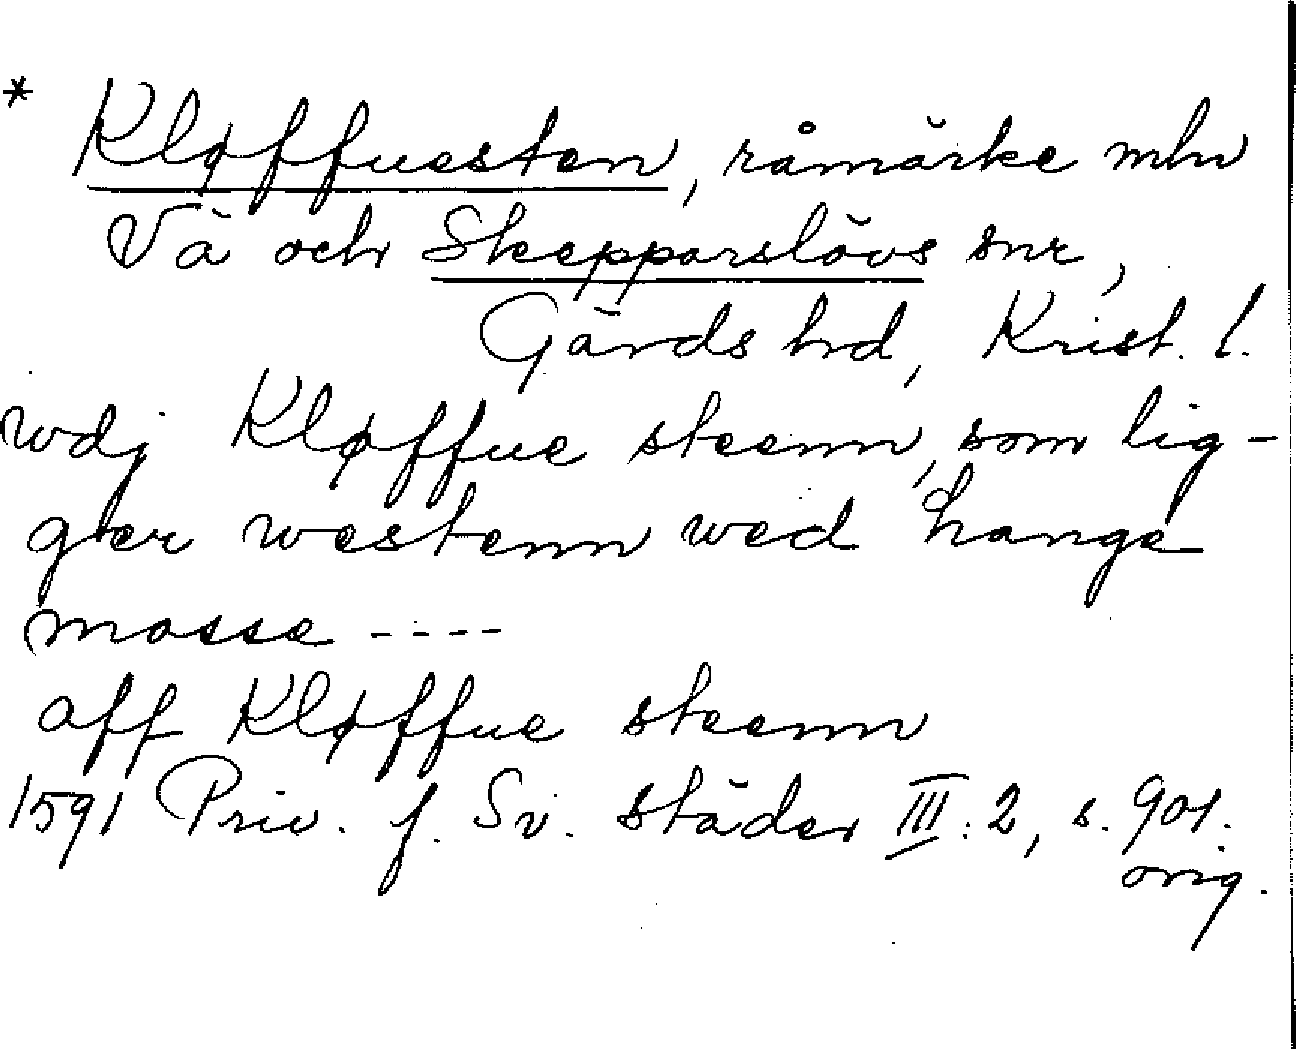 * Kløffuesten, råmärke mln
Vä och Skepparslövs snr,
Gärds hd, Krist. l.
wdj Kløffue steenn, som lig-
ger westenn wed hange
mosse ----
aff Kløffue steenn
1591 Priv. f. Sv. städer III:2, s. 901.
orig.